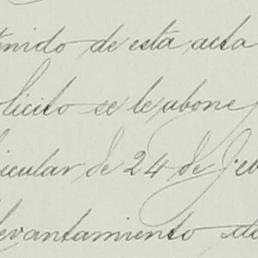 tenido de esta acta
olicito se le abone
icular de 24 de Feb
levantamiento de